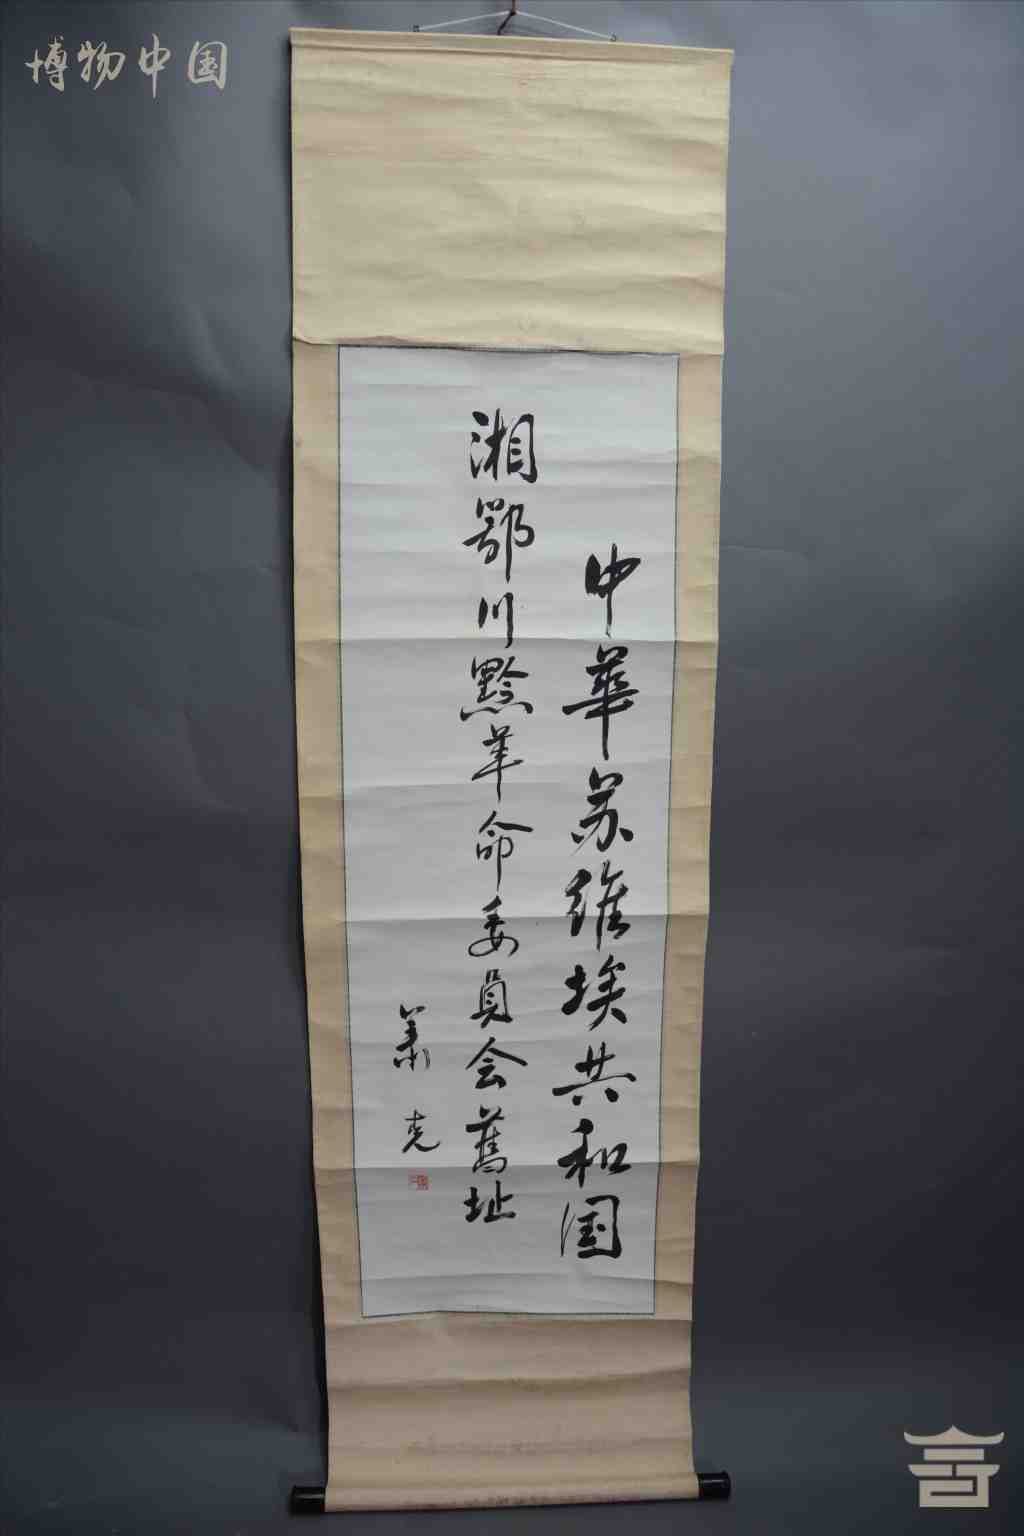 博物中国
中華苏維埃共和国
湘鄂川黔革命委員会舊址
萧克